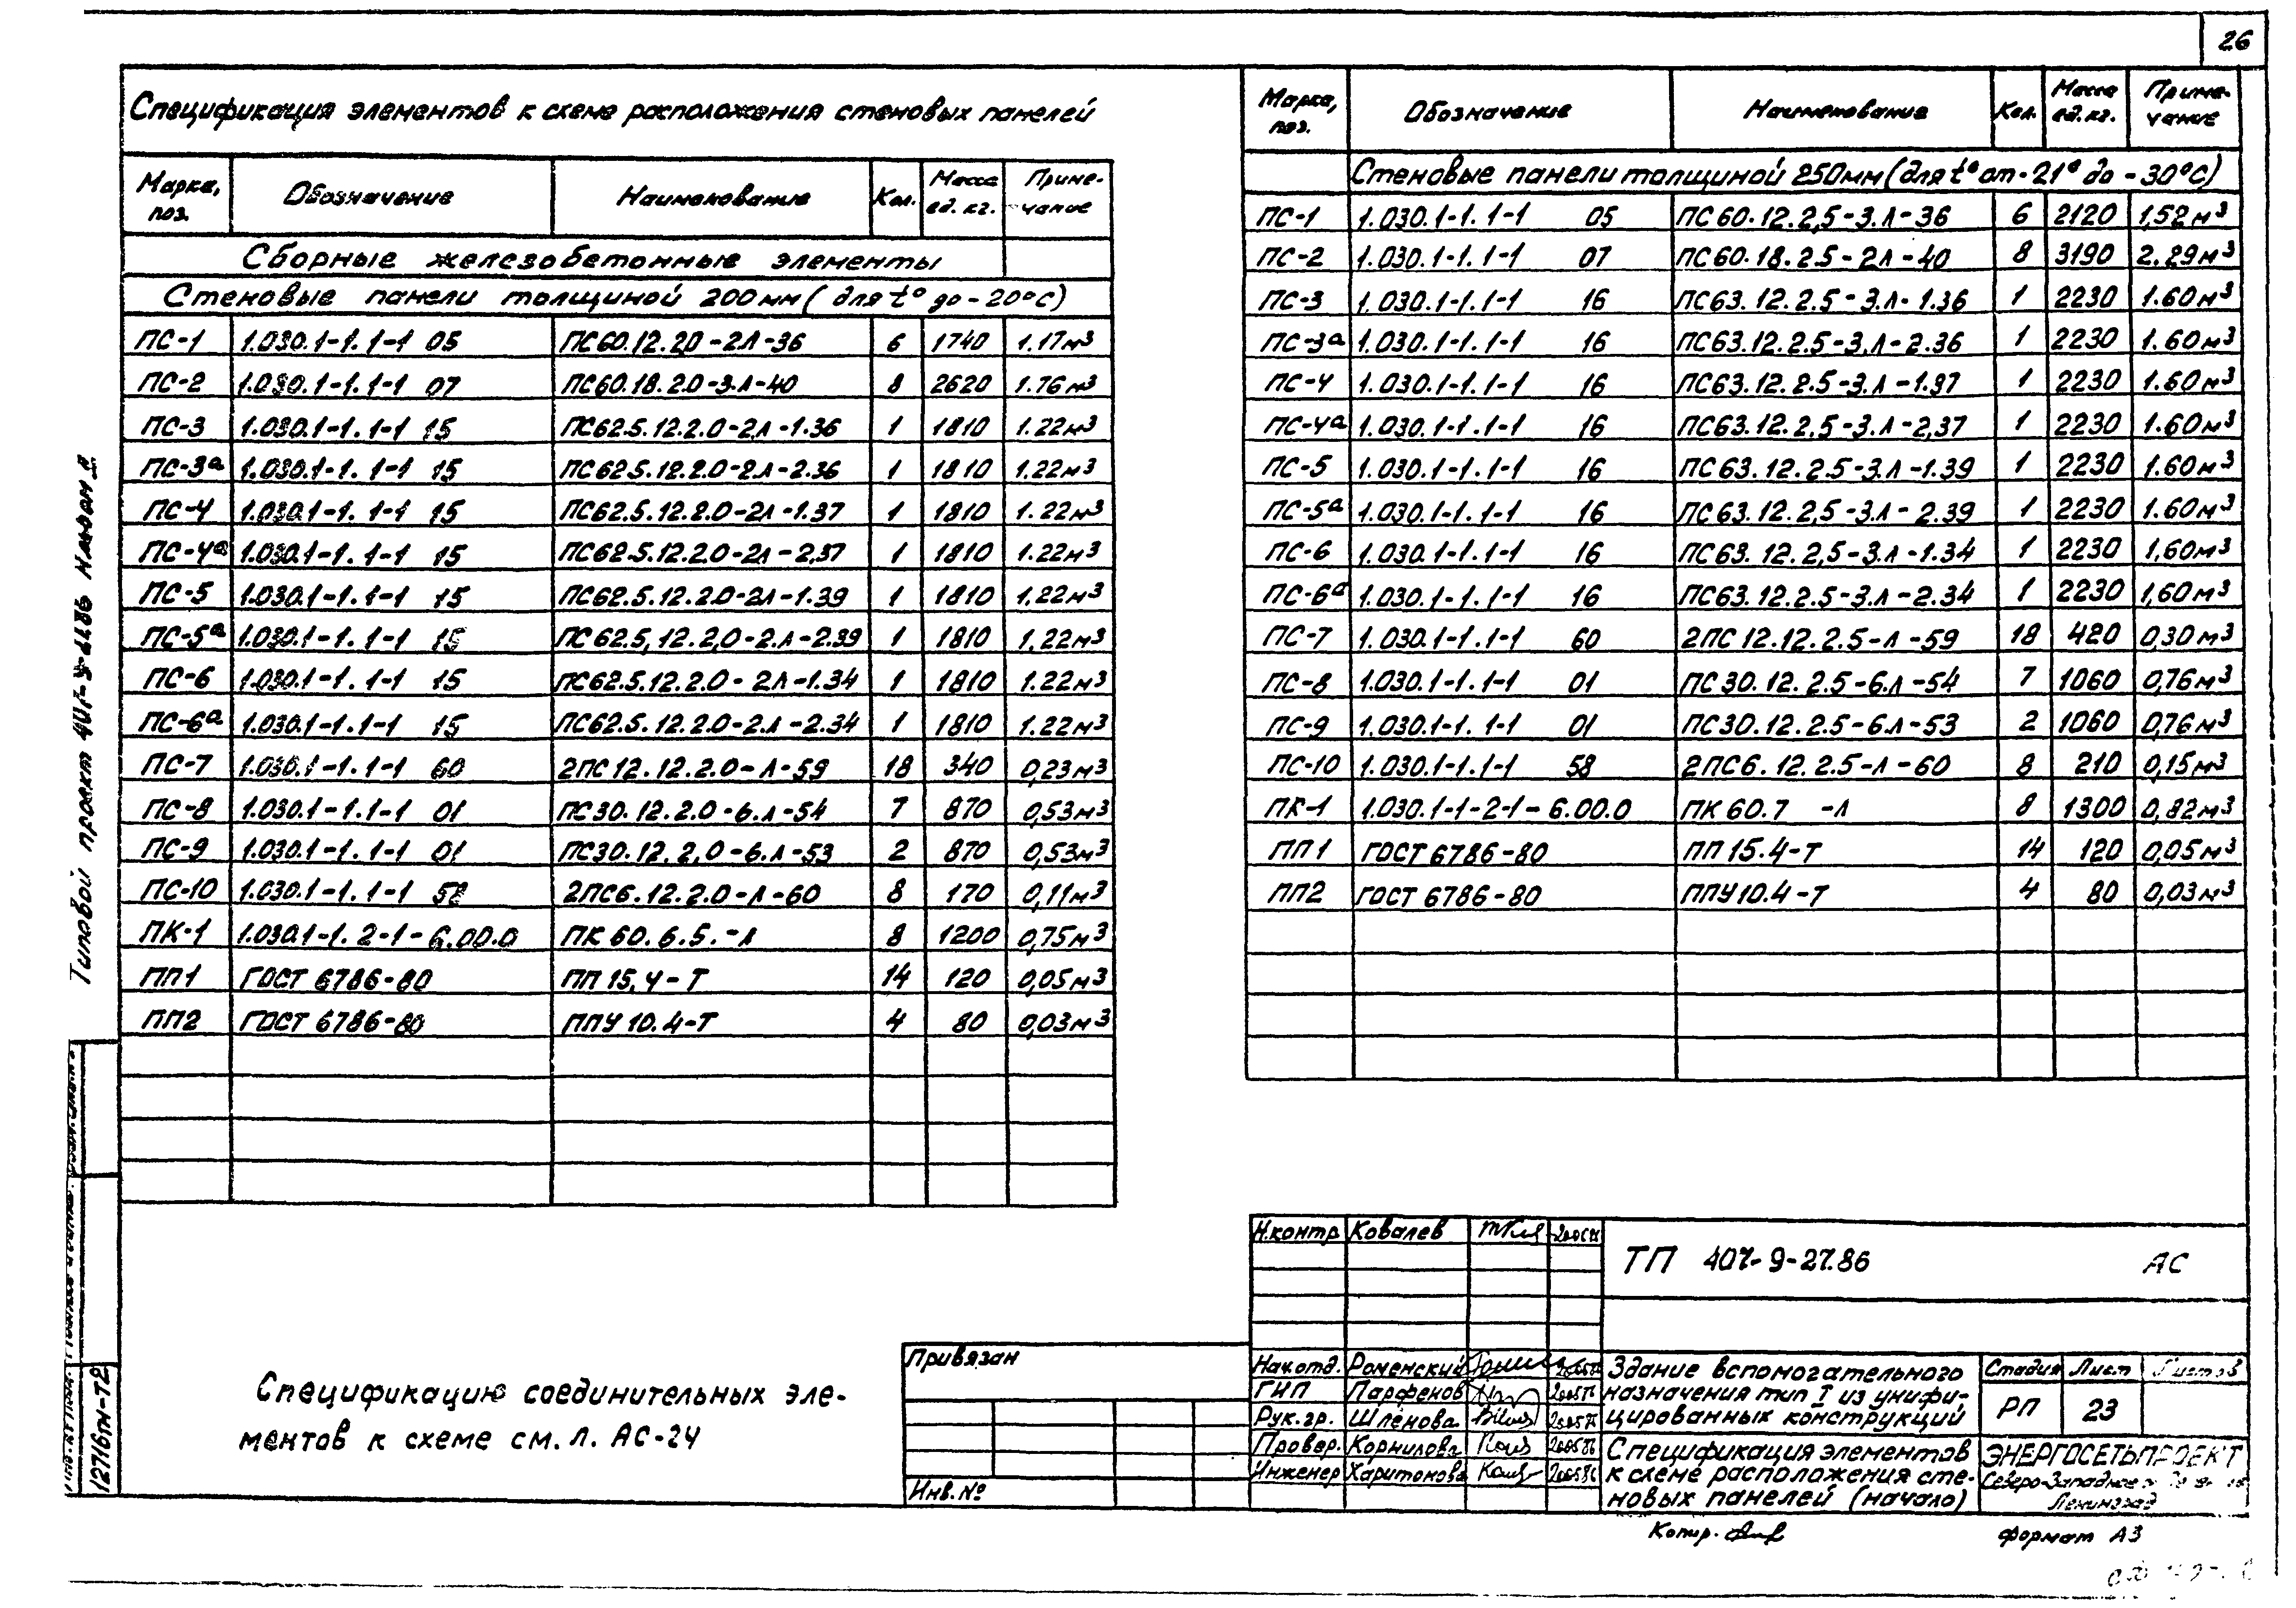 26
Спецификация элементов к схеме расположения стеновых панелей
Марка, поз. Обозначение Наименование Кол. Масса ед. кг. Приме-чание
Сборные железобетонные элементы
Стеновые панели толщиной 200мм (для t° до -20°С)
ПС-1 1.030.1-1. 1-1 05 ПС60.12.20-2Л-36 6 1740 1.17м3
ПС-2 1.030.1-1. 1-1 07 ПС60.18.2.0-3.Л-40 8 2620 1.76м3
ПС-3 1.030.1-1. 1-1 15 ПС62.5.12.2.0-2Л-1.36 1 1810 1.22м3
ПС-3а 1.030.1-1. 1-1 15 ПС62.5.12.2.0-2.Л-2.36 1 1810 1.22м3
ПС-4 1.030.1-1. 1-1 15 ПС62.5.12.2.0-2Л-1.37 1 1810 1.22м3
ПС-4а 1.030.1-1. 1-1 15 ПС62.5.12.2.0-2Л-2.37 1 1810 1.22м3
ПС-5 1.030.1-1. 1-1 15 ПС62.5.12.2.0-2Л-1.39 1 1810 1.22м3
ПС-5а 1.030.1-1. 1-1 15 ПС62.5,12.2,0-2.Л-2.39 1 1810 1,22м3
ПС-6 1.030.1-1. 1-1 15 ПС62.5.12.2.0-2Л-1.34 1 1810 1.22м3
ПС-6а 1.030.1-1. 1-1 15 ПС62.5.12.2.0-2.Л-2.34 1 1810 1.22м3
ПС-7 1.030.1-1. 1-1 60 2ПС12.12.2.0-Л-59 18 340 0,23м3
ПС-8 1.030.1-1.1-1 01 ПС30.12.2.0-6.Л-54 7 870 0,53м3
ПС-9 1.030.1-1. 1-1 01 ПС30.12.2,0-6.Л-53 2 870 0,53м3
ПС-10 1.030.1-1. 1-1 58 2ПС6.12.2.0-Л-60 8 170 0,11м3
ПК-1 1.030.1-1. 2-1-6.00.0 ПК 60.6.5.-Л 8 1200 0,75м3
ПП1 ГОСТ 6786-80 ПП 15,4-Т 14 120 0,05м3
ПП2 ГОСТ 6786-80 ППУ 10.4-Т 4 80 0,03м3
Марка, поз. Обозначение Наименование Кол. Масса ед. кг. Приме-чание
Стеновые панели толщиной 250мм (для t° от -21° до -30°С)
ПС-1 1.030.1-1. 1-1 05 ПС60.12.2,5-3.Л-36 6 2120 1,52м3
ПС-2 1.030.1-1. 1-1 07 ПС60.18.2.5-2Л-40 8 3190 2.29м3
ПС-3 1.030.1-1. 1-1 16 ПС63.12.2.5-3.Л-1.36 1 2230 1.60м3
ПС-3а 1.030.1-1. 1-1 16 ПС63.12.2.5-3.Л-2.36 1 2230 1.60м3
ПС-4 1.030.1-1. 1-1 16 ПС63.12.2.5-3.Л-1.37 1 2230 1.60м3
ПС-4а 1.030.1-1.1-1 16 ПС63.12.2,5-3.Л-2,37 1 2230 1.60м3
ПС-5 1.030.1-1.1-1 16 ПС63.12.2.5-3.Л-1.39 1 2230 1.60м3
ПС-5а 1.030.1-1.1-1 16 ПС63.12.2,5-3.Л-2.39 1 2230 1.60м3
ПС-6 1.030.1-1.1-1 16 ПС63.12.2,5-3.Л-1.34 1 2230 1,60м3
ПС-6а 1.030.1-1.1-1 16 ПС63.12.2.5-3.Л-2.34 1 2230 1,60м3
ПС-7 1.030.1-1.1-1 60 2ПС12.12.2.5-Л-59 18 420 0,30м3
ПС-8 1.030.1-1.1-1 01 ПС30.12.2.5-6.Л-54 7 1060 0,76м3
ПС-9 1.030.1-1.1-1 01 ПС30.12.2.5-6Л-53 2 1060 0,76м3
ПС-10 1.030.1-1.1-1 58 2ПС6.12.2.5-Л-60 8 210 0,15м3
ПК-1 1.030.1-1-2-1-6.00.0 ПК 60.7 -Л 8 1300 0,82м3
ПП1 ГОСТ 6786-80 ПП 15.4-Т 14 120 0,05м3
ПП2 ГОСТ 6786-80 ППУ10.4-Т 4 80 0,03м3
Типовой проект
12716тм-т2
Спецификацию соединительных эле-
ментов к схеме см. л. АС-24
Привязан
Инв.№
Н.контр Ковалев
Нач.отд. Роменский
ГИП Парфенов
Рук.гр. Шленова
Провер. Корнилова
Инженер Харитонова
ТП 407-9-27.86 АС
Здание вспомогательного
назначения тип I из унифи-
цированных конструкций
Стадия Лист Листов
РП 23
Спецификация элементов
к схеме расположения сте-
новых панелей (начало)
ЭНЕРГОСЕТЬПРОЕКТ
Северо-Западное
Ленинград
Копир.
формат А3